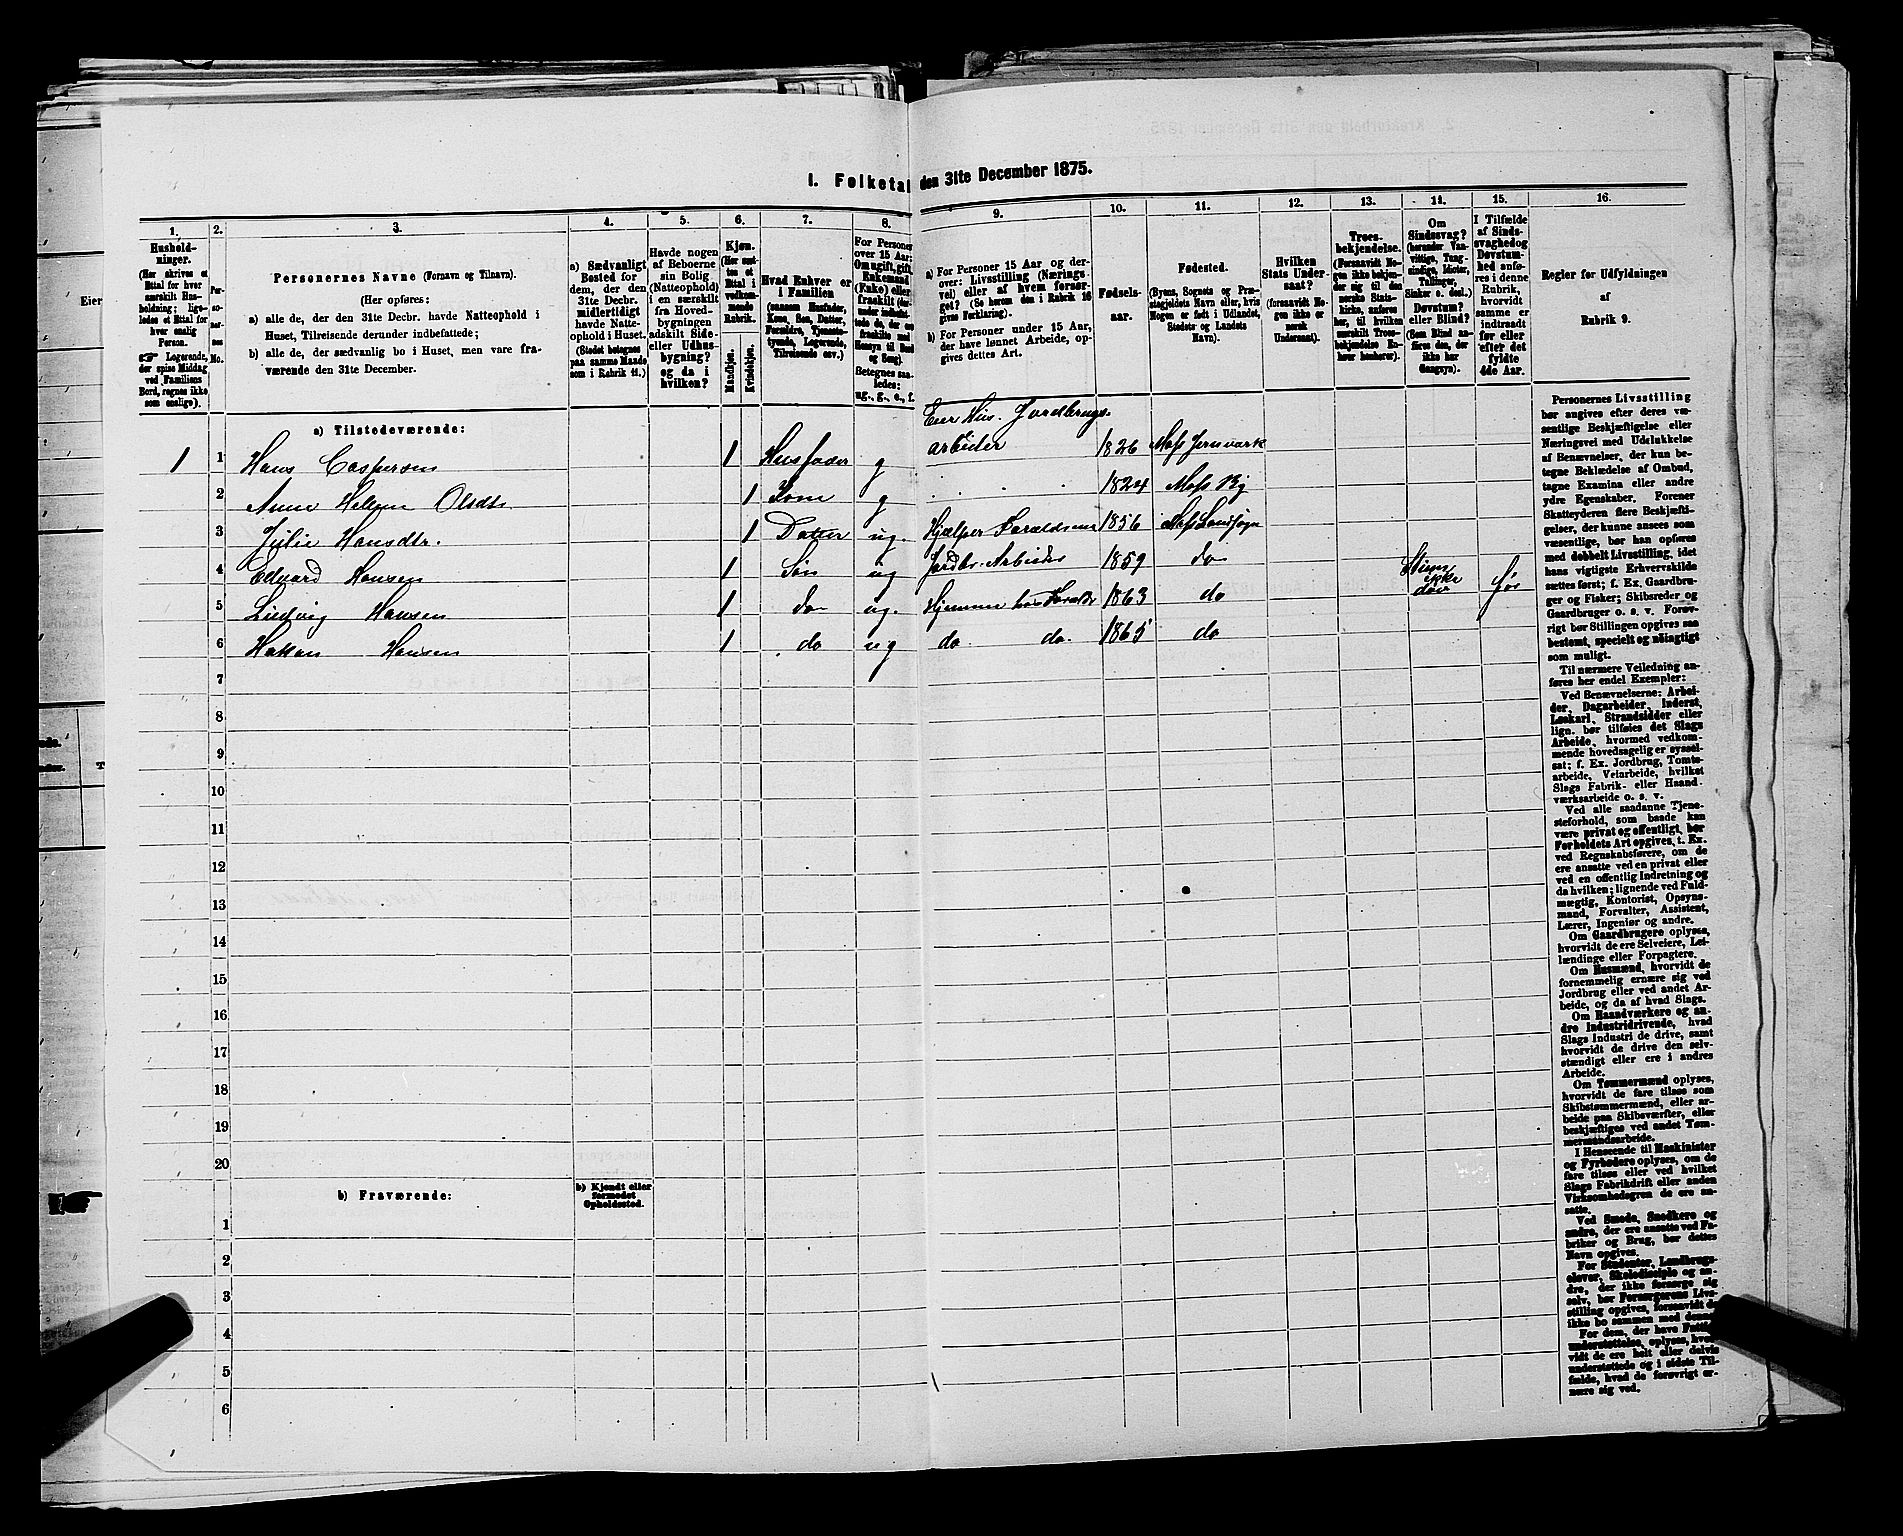 1. Folketal den 31te December 1875.
1. 2. 3. 4. 5. 6. 7. 8. 9. 10. 11. 12. 13. 14. 15. 16.
Hushold-
ninger.
(Her skrives et
Ettal for hver
særskilt Hus-
holdning; lige-
ledes et Ettal for
hver enslig
Person.
☞ Logerende,
der spise Middag
ved Familiens
Bord, regnes ikke
som enslige).
Per-
so-
ner-
nes
No.
Personernes Navne (Fornavn og Tilnavn).
(Her opføres:
a) alle de, der den 31te Decbr. havde Natteophold i
Huset, Tilreisende derunder indbefattede;
b) alle de, der sædvanlig bo i Huset, men vare fra-
værende den 31te December.
a) Sædvanligt
Bosted for
dem, der den
31te Decbr.
midlertidigt
havde Natte-
ophold i Huset.
(Stedet betegnes
paa samme Maade
som i Rubrik 11.)
Havde nogen
af Beboerne
sin Bolig
(Natteophold)
i en særskilt
fra Hoved-
bygningen
adskilt Side-
eller Udhus-
bygning?
og da i
hvilken?
Kjøn.
(Her sæt-
tes et
Ettal i
vedkom-
mende
Rubrik.
Mandkjøn.
Kvindekjøn.
Hvad Enhver er
i Familien
(saasom Husfader,
Kone, Søn, Datter,
Forældre, Tjeneste-
tyende, Logerende,
Tilreisende osv.)
For Personer
over 15 Aar:
Om ugift, gift,
Enkemand
(Enke) eller
fraskilt
Betegnes saa-
ledes:
ug., g., e., f.
a) For Personer 15 Aar og der-
over: Livsstilling (Nærings-
vei) eller af hvem forsør-
get? (Se herom den i Rubrik 16
givne Forklaring).
b) For Personer under 15 Aar,
der have lønnet Arbeide, op-
gives dettes Art.
Fødsels-
aar.
Fødested.
(Byens, Sognets og Præ-
stegjeldets Navn eller, hvis
Nogen er født i Udlandet,
Stedets og Landets
Navn).
Hvilken
Stats Under-
saat?
(forsaavidt No-
gen ikke er
norsk
Undersaat).
Troes-
bekjendelse.
(Forsaavidt No-
gen ikke bekjen-
der sig til den
norske Stats-
kirke, anføres
her, til hvilken
særskilt Tros-
bekjendelse En-
hver henhører).
Om
Sindssvag?
(herunder Van-
vittige, Tung-
sindige, Idioter,
Tullinger,
Sinker o. desl.)
Døvstum?
eller Blind?
(Som Blind an-
føres den, der
ikke har
Gangsyn).
I Tilfælde
af Sinds-
svaghed og
Døvstum-
hed anfø-
res i denne
Rubrik,
hvorvidt
samme er
indtraadt
før eller
efter det
fyldte
4de Aar.
Regler for Udfyldningen
af
Rubrik 9.
a) Tilstedeværende:
Eier Hus. Jordbrugs-
1 1 Hans Caspersen 1 Husfader g arbeider 1826 Moss Jernværk
2 Anne Hellene Olsdtr 1 Kone g 1824 Moss By
3 Julie Hansdtr. 1 Datter ug. Hjælper Forældrene 1856 Moss Landsogn
4 Edvard Hansen 1 Søn ug Jordbr. Arbeider 1859 do
Stum
ikke
døv før
5 Ludvig Hansen 1 do ug. Hjemme hos Foræld 1863 do
6 Hakan Hansen 1 do ug do do. 1865 do
7
8
9
10
11
12
13
14
15
16
17
18
19
20
b) Fraværende:
b) Kjendt eller
formodet
Opholdssted.
1
2
3
4
5
6
Personernes Livsstilling
bør angives efter deres væ-
sentlige Beskjæftigelse eller
Næringsvei med Udelukkelse
af Benævnelser, der kun be-
tegne Beklædelse af Ombud,
tagne Examina eller andre
ydre Egenskaber. Forener
Skatteyderen flere Beskjæfti-
gelser, der kunne ansees som
væsentlige, bør han opføres
med dobbelt Livsstilling, idet
hans vigtigste Erhvervskilde
sættes først; f. Ex. Gaardbru-
ger og Fisker; Skibsreder og
Gaardbruger o. s. v. Forøv-
rigt bør Stillingen opgives saa
bestemt, specielt og nøiagtigt
som muligt.
Til nærmere Veiledning an-
føres her endel Exempler:
Ved Benævnelserne: Arbei-
der, Dagarbeider, Inderst,
Løskarl, Strandsidder eller
lign. bør tilføies det Slags
Arbeide, hvormed vedkom-
mende hovedsagelig er syssel-
sat; f. Ex. Jordbrug, Tomte-
arbeide, Veiarbeide, hvilket
Slags Fabrik- eller Haand-
værksarbeide o. s. v.
Ved alle saadanne Tjene-
steforhold, som baade kan
være privat og offentligt, bør
Forholdets Art opgives, t. Ex.
ved Regnskabsførere, om de
ere ansatte ved en privat eller
ved en offentlig Indretning og
da hvilken; lignende ved Fuld-
mægtig, Kontorist, Opsyns-
mand, Forvalter, Assistent,
Lærer, Ingeniør og andre.
Om Gaardbrugere oplyses,
hvorvidt de ere Selveiere, Lei-
lændinge eller Forpagtere.
Om Husmænd, hvorvidt de
fornemmelig ernære sig ved
Jordbrug eller ved andet Ar-
beide, og da af hvad Slags.
Om Haandværkere og an-
dre Industridrivende, hvad
Slags Industri de drive, samt
hvorvidt de drive den selv-
stændigt eller ere i andres
Arbeide.
Om Tømmermænd oplyses,
hvorvidt de fare tilsøs som
Skibstømmermænd, eller ar-
beide paa Skibsværfter, eller
beskjæftiges ved andet Tøm-
mermandsarbeide.
I Henseende til Maskinister
og Fyrbødere oplyses, om de
fare tilsøs eller ved hvilket
Slags Fabrikdrift eller anden
Virksomhedsgren de ere an-
satte.
Ved Smede, Snedkere og
andre, der ere ansatte ved Fa-
briker og Brug, bør dettes
Navn opgives.
For Studenter, Landbrugs-
elever, Skoledisciple og an-
dre, der ikke forsørge sig
selv, bør Forsørgerens Livs-
stilling opgives, forsaavidt de
ikke bo sammen med denne.
For dem, der have Fattig-
understøttelse, oplyses, hvor-
vidt de ere helt eller delvis
understøttede og i sidste Til-
fælde, hvad de forøvrigt er-
nære sig ved.